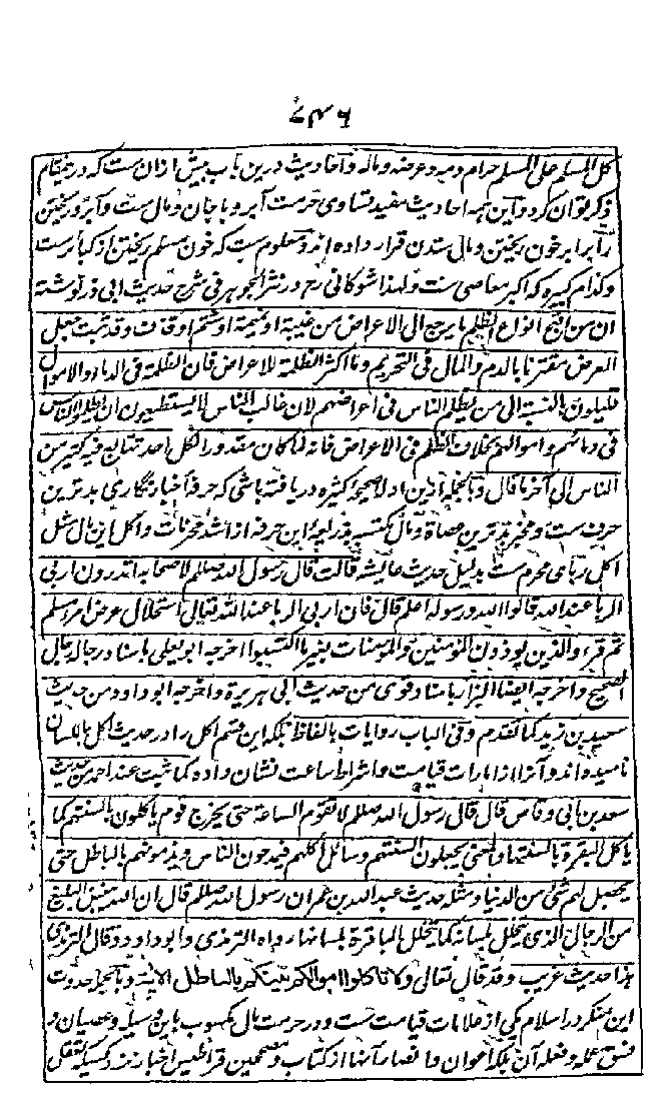 ۷۳۶
کل المسلم علی المسلم حرام دمه و عرضه و ماله و احادیث درین باب بیش ازان ست که در نیمقام
ذکر توان کرد و این همه احادیث مفید تساوی حرمت آبرو با جان و مال ست و آبرو ریختن
را برابر خون ریختن و مال ستدن قرار داده اند و معلوم ست که خون مسلم ریختن از کبائرست
و کدام کبیره که اکبر معاصی ست و لهذا شوکانی رح در نثر الجوهر فی شرح حدیث ابی ذر نوشته
ان من اقبح انواع الظلم ما یرجع الی الاعراض من غیبة او نمیمة او شتم او قذف وقد ثبت جعل
العرض مقترنا بالدم والمال فی التحریم وما اکثر الظلمة للاعراض فان الظلمة فی الدماء والاموال
قلیلون بالنسبة الی من یظلم الناس فی اعراضهم لان غالب الناس لا یستطیعون ان یظلموا الناس
فی دمائهم و اموالهم بخلاف الظلم فی الاعراض فانه لما کان مقدورا لکل احد تتابع فیه کثیر من
الناس الی آخر ما قال و بالجمله ازین ادله صحیحه کثیره دریافته باشی که حرفه اخبار نگاری بدترین
حرف ست و مخبر بدترین عصاة و مال مکتسبه بذریعه این حرفه از اشد محرمات و اکل این مال مثل
اکل ربای محرم ست بدلیل حدیث عایشه قالت قال رسول الله صللم لاصحابه اتدرون اربی
الربا عند الله قالوا الله و رسوله اعلم قال فان اربی الربا عند الله تعالی استحلال عرض امرء مسلم
ثم قرء والذین یوذون المومنین والمومنات بغیر ما اکتسبوا اخرجه ابو یعلی باسناد رجاله رجال
الصحیح و اخرجه ایضا البزار باسناد قوی من حدیث ابی هریرة و اخرجه ابو داود من حدیث
سعید بن زید کما تقدم و فی الباب روایات بالفاظ بلکه این قسم اکل را در حدیث اکل باللسان
نامیده اند و آنرا از امارات قیامت و اشراط ساعت نشان داده کما ثبت عند احمد من حدیث
سعد بن ابی وقاص قال قال رسول الله صللم لا تقوم الساعة حتی یخرج قوم یاکلون بالسنتهم کما
یاکل البقرة بالسنتها والمعنی یجعلون السنتهم وسائل اکلهم فیمدحون الناس و یذمونهم بالباطل حتی
یحصل لهم شیٔ من الدنیا و مثله حدیث عبدالله بن عمر ان رسول الله صللم قال ان الله یبغض البلیغ
من الرجال الذی یتخلل بلسانه کما یتخلل الباقرة بلسانها رواه الترمذی و ابو داود و قال الترمذی
هذا حدیث غریب و قد قال تعالی ولا تاکلوا اموالکم بینکم بالباطل الایة و بالجمله حدوث
این منکر در اسلام یکی از علامات قیامت ست و در حرمت مال مکسوب باین وسیله و عصیان و
فسق عمله و فعله آن بلکه اعوان و انصار آنها از کتاب و مصححین قراطیس اخبار نزد کسیکه تعقل